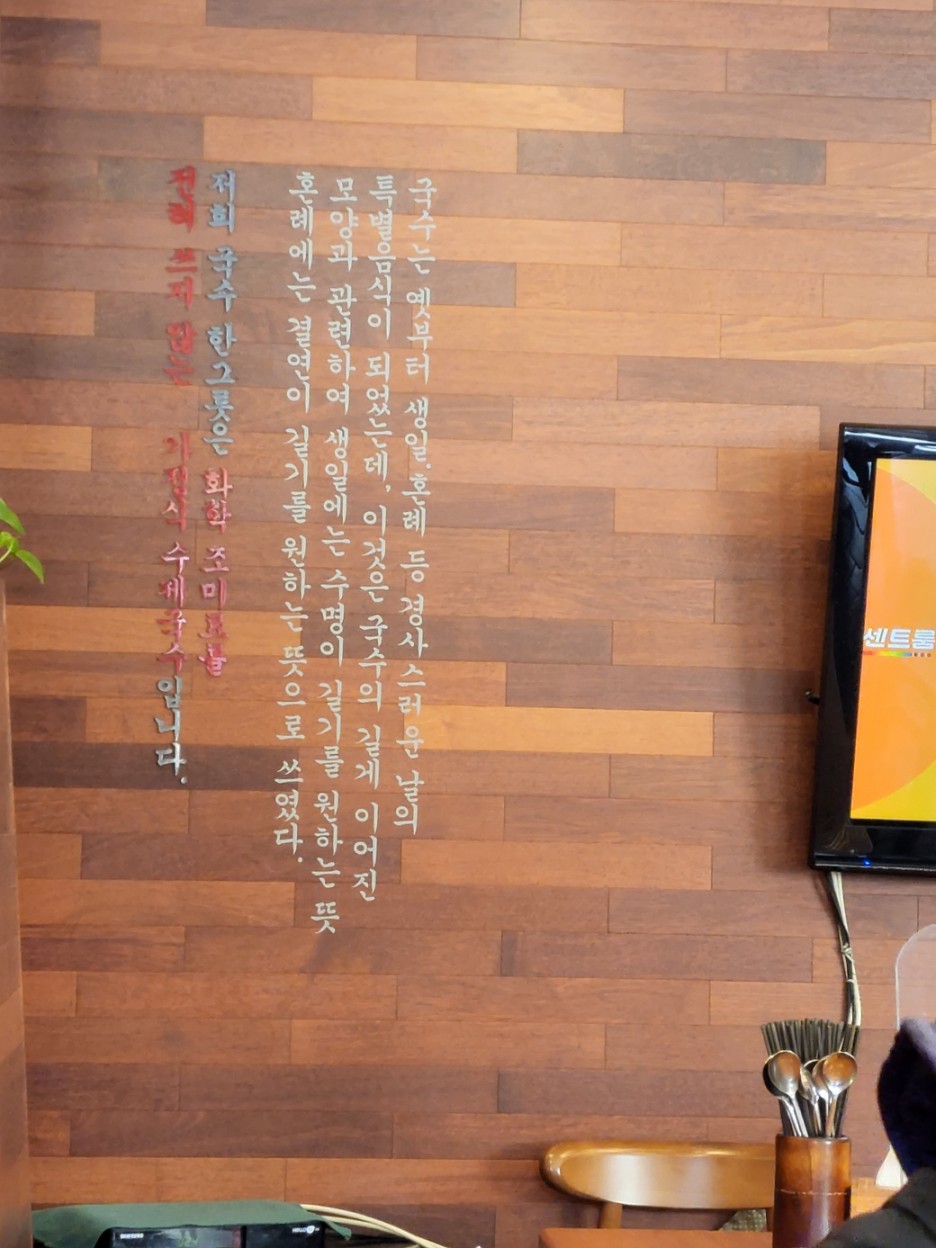 국수는 옛부터 생일.혼례 등 경사스러운 날의
특별음식이 되었는데, 이것은 국수의 길게 이어진
모양과 관련하여 생일에는 수명이 길기를 원하는 뜻
혼례에는 결연이 길기를 원하는 뜻으로 쓰였다.
저희 국수 한그릇은 화학 조미료를
전혀 쓰지 않는 가정식 수제국수입니다.
센트룸
SAMSUNG